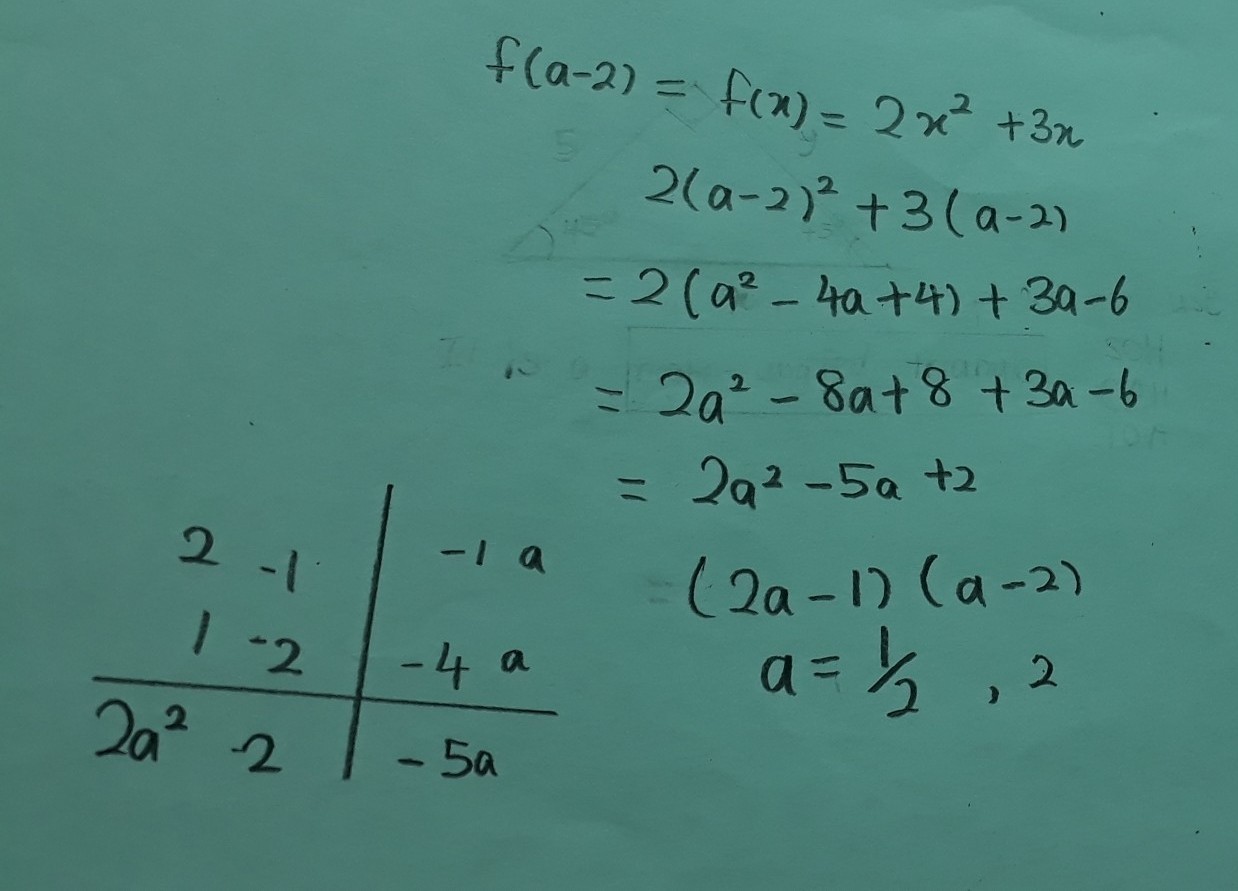 f(a-2) = f(x) = 2x² +3x
2(a-2)² +3(a-2)
= 2(a² - 4a+4) + 3a-6
= 2a² - 8a+8 +3a-6
= 2a² -5a +2
= (2a-1)(a-2)
a = 1/2 , 2
2 -1 -1 a
1 -2 -4 a
2a² -2 -5a